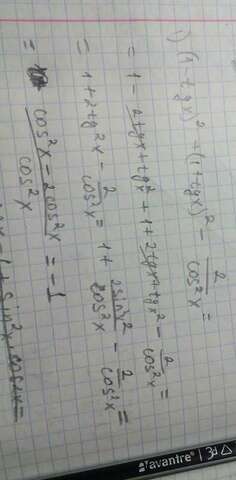 1) (1 - tgx)² + (1 + tgx)² - 2/cos²x =
= 1 - 2tgx + tg² + 1 + 2tgx + tg² - 2/cos²x =
= 1 + 2tg²x - 2/cos²x = 1 + 2sin²x²/cos²x - 2/cos²x =
= cos²x - 2cos²x/cos²x = -1
avantre